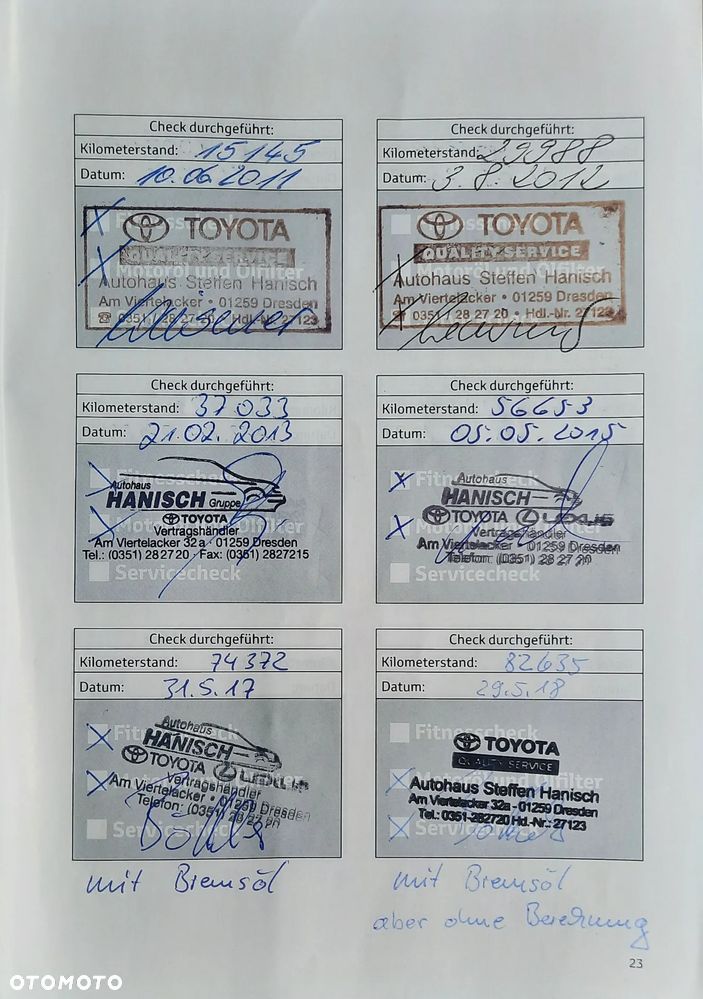 Check durchgeführt:
Kilometerstand: 15145
Datum: 10.06.2011
Fitnesscheck
TOYOTA
QUALITY SERVICE
Motoröl und Ölfilter
Autohaus Steffen Hanisch
Am Viertelacker • 01259 Dresden
☎ 0351 / 28 27 20 • Hdl.-Nr. 27123
Check durchgeführt:
Kilometerstand: 29988
Datum: 3.8.2012
Fitnesscheck
TOYOTA
QUALITY SERVICE
Motoröl und Ölfilter
Autohaus Steffen Hanisch
Am Viertelacker • 01259 Dresden
☎ 0351 / 28 27 20 • Hdl.-Nr. 27123
Check durchgeführt:
Kilometerstand: 37033
Datum: 21.02.2013
Fitnesscheck
Autohaus
HANISCH Gruppe
Motoröl und Ölfilter
TOYOTA
Vertragshändler
Am Viertelacker 32a · 01259 Dresden
Tel.: (0351) 282720 · Fax: (0351) 2827215
Servicecheck
Check durchgeführt:
Kilometerstand: 56653
Datum: 05.05.2015
Fitnesscheck
Autohaus
HANISCH
Motoröl und Ölfilter
TOYOTA LEXUS
Vertragshändler
Am Viertelacker · 01259 Dresden
Telefon: (0351) 28 27 20
Servicecheck
Check durchgeführt:
Kilometerstand: 74372
Datum: 31.5.17
Fitnesscheck
Autohaus
HANISCH
TOYOTA LEXUS
Motoröl und Ölfilter
Vertragshändler
Am Viertelacker · 01259 Dresden
Telefon: (0351) 28 27 20
Servicecheck
mit Bremsöl
Check durchgeführt:
Kilometerstand: 82635
Datum: 29.5.18
Fitnesscheck
TOYOTA
QUALITY SERVICE
Motoröl und Ölfilter
Autohaus Steffen Hanisch
Am Viertelacker 32a - 01259 Dresden
Tel.: 0351-282720 Hd.-Nr.: 27123
Servicecheck
mit Bremsöl
aber ohne Berechnung
23
OTOMOTO